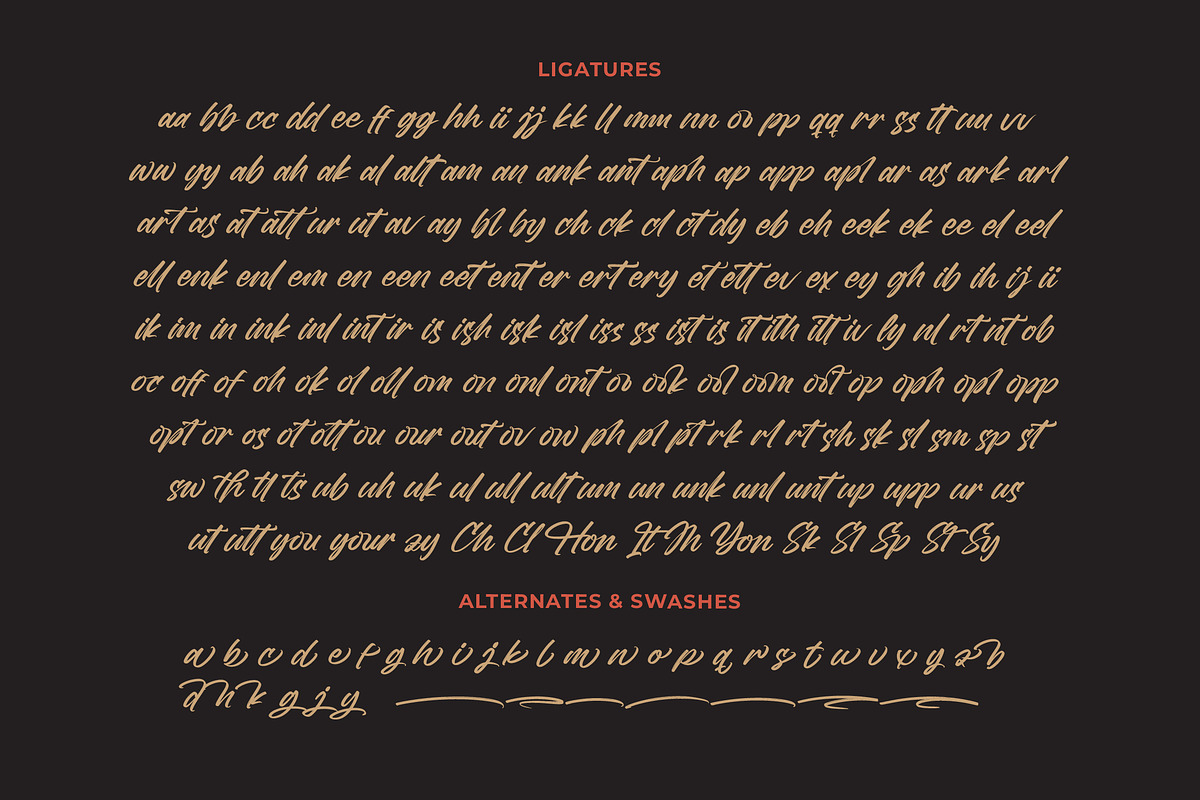 LIGATURES
aa bb cc dd ee ff gg hh ii jj kk ll mm nn oo pp qq rr ss tt uu vv
ww yy ab ah ak al alt am an ank ant aph ap app apl ar as ark arl
art as at att ur ut av ay bl by ch ck cl ct dy eb eh eek ek ee el eel
ell enk enl em en een eet ent er ert ery et ett ev ex ey gh ib ih ij ii
ik im in ink inl int ir is ish isk isl iss ss ist is it ith itt iv ly nl rt nt ob
oc off of oh ok ol oll om on onl ont oo ook ool oom oot op oph opl opp
opt or os ot ott ou our out ov ow ph pl pt rk rl rt sh sk sl sm sp st
sw th tl ts ub uh uk ul ull ult um un unk unl unt up upp ur us
ut utt you your zy Ch Cl Hon It Th Yon Sk Sl Sp St Sy
ALTERNATES & SWASHES
a b c d e f g h i j k l m n o p q r s t u v x y z b
d h k g j y